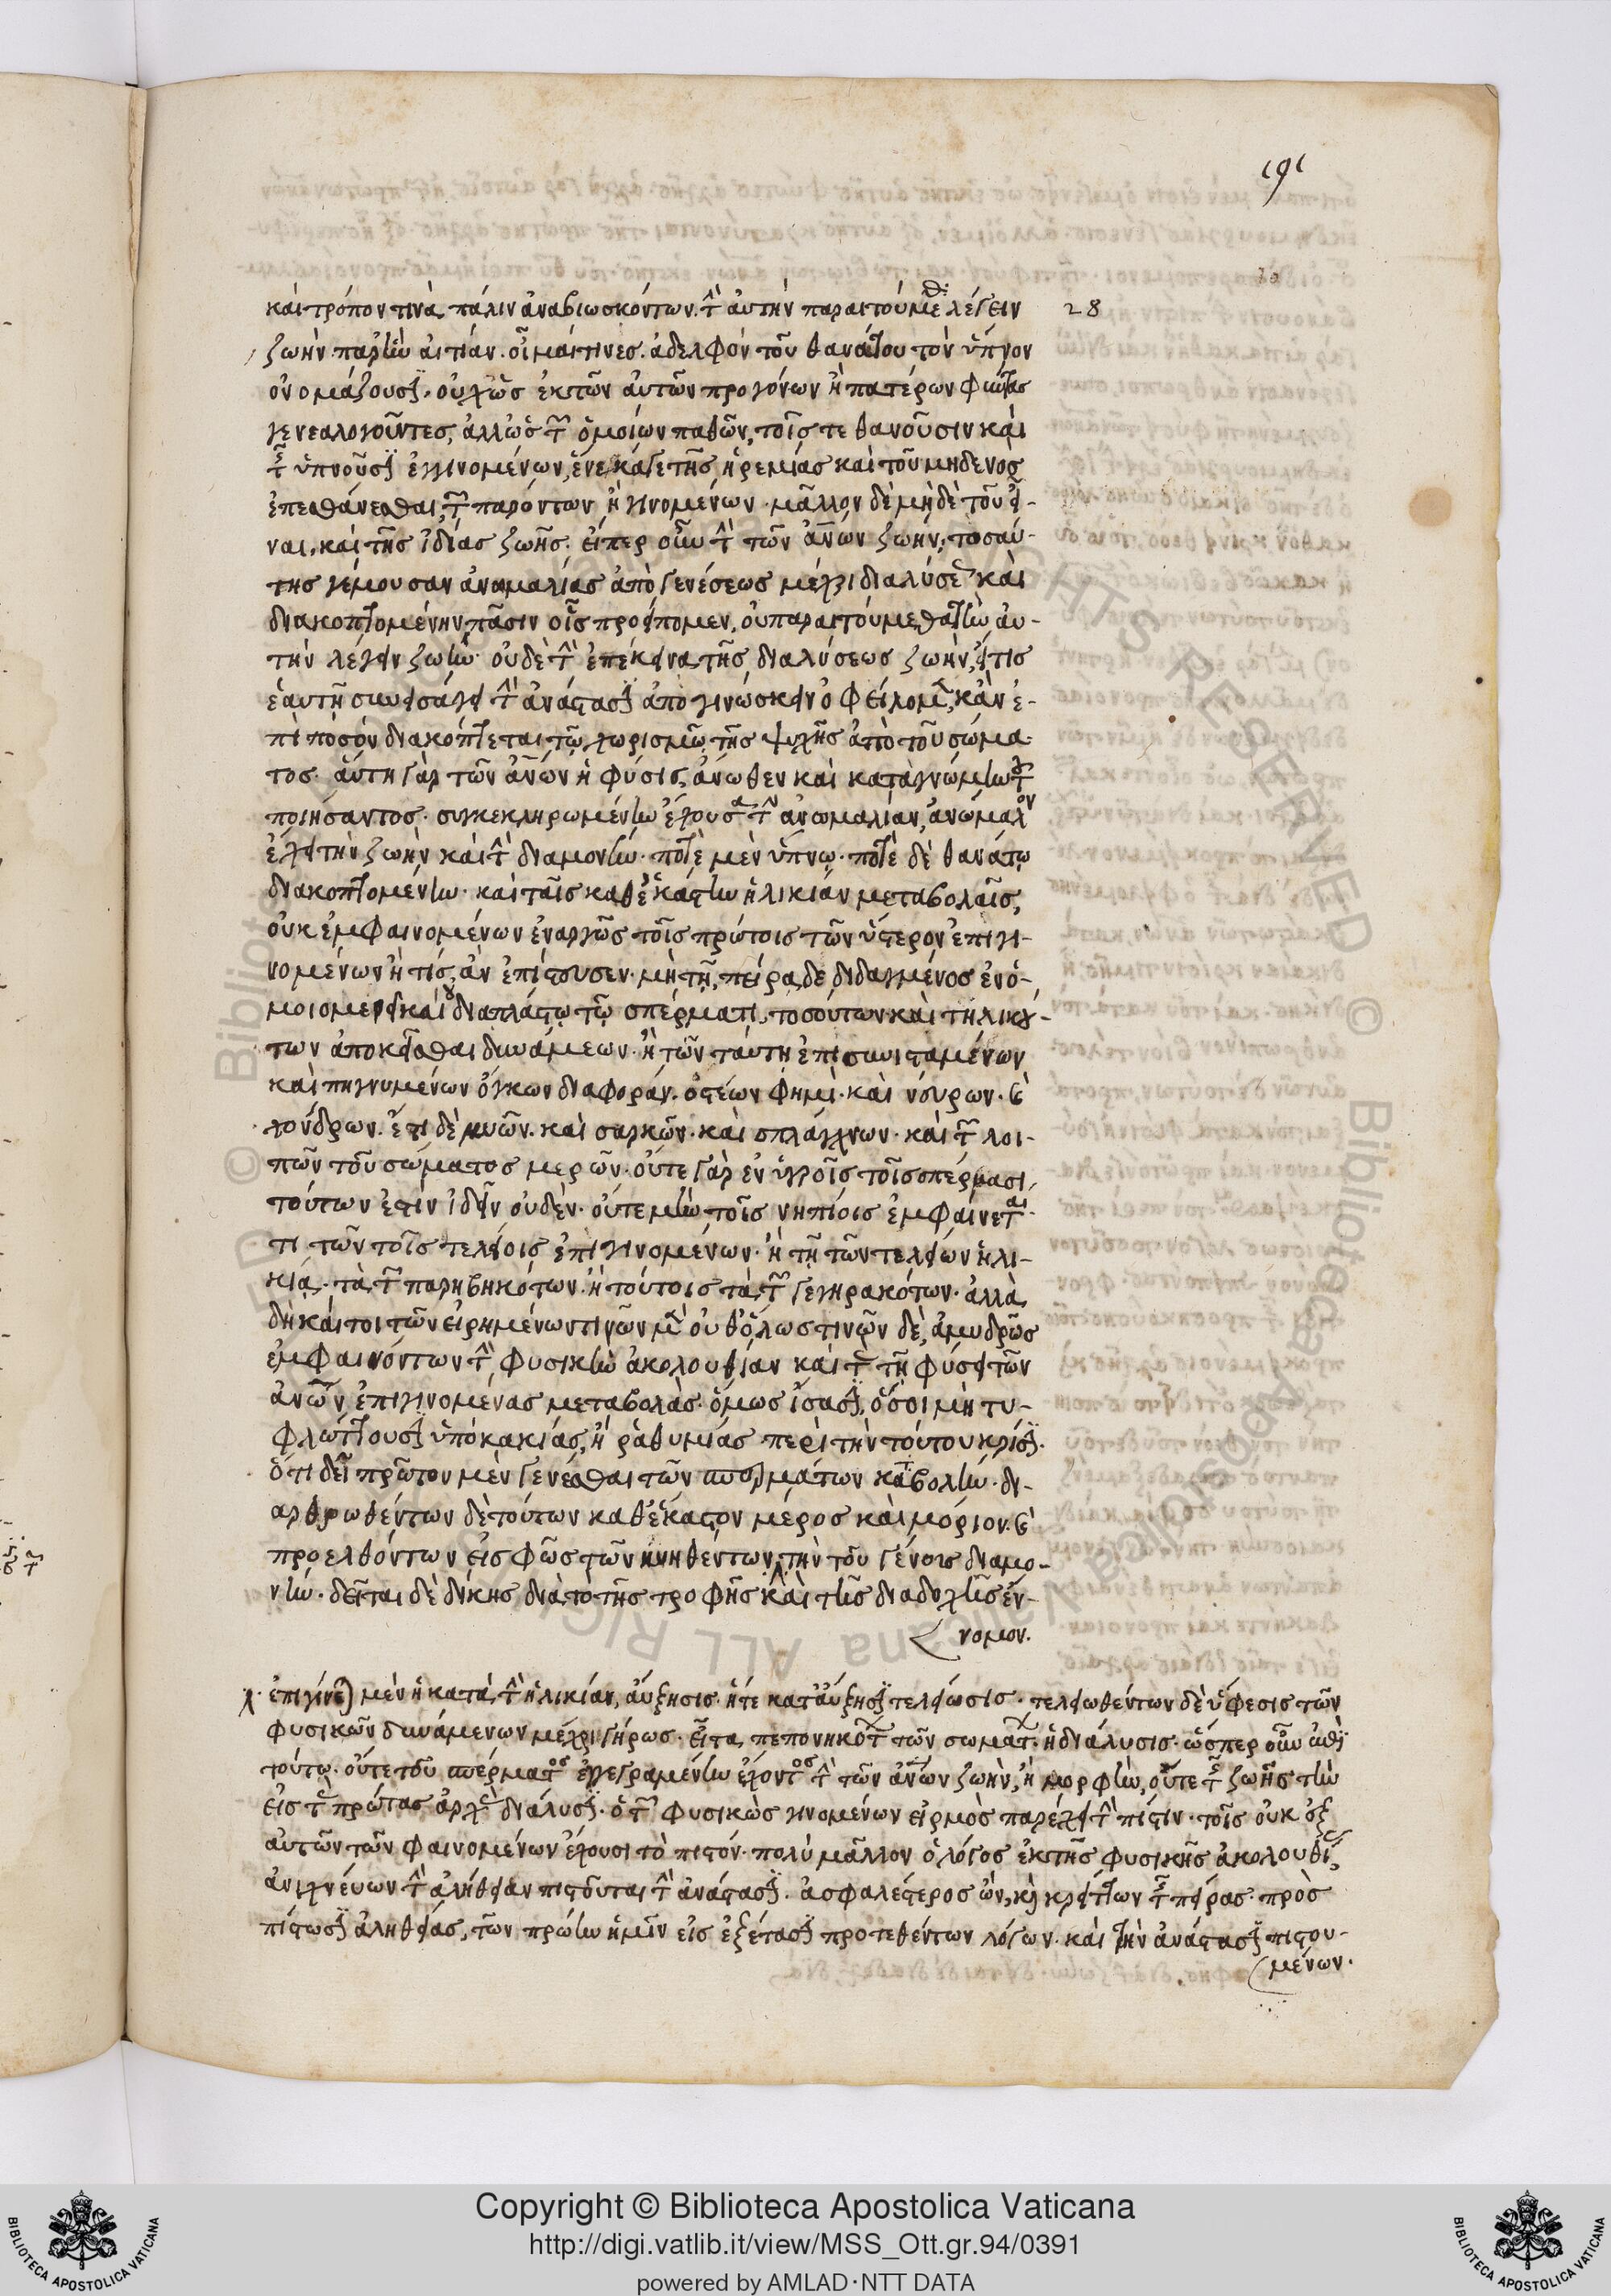 191
10
καὶ τρόπον τινὰ πάλιν ἀναβιωσκόντων. τὴν αὐτὴν παραιτούμεθα λέγειν 28
ζωὴν παρ' ἣν αἰτίαν. οἶμαί τινες. ἀδελφὸν τοῦ θανάτου τὸν ὕπνον
ὀνομάζουσιν. οὐχ ὡς ἐκ τῶν αὐτῶν προγόνων ἢ πατέρων φύντας
γενεαλογοῦντες, ἀλλ' ὡς τῶν ὁμοίων παθῶν, τοῖς τε θανοῦσιν καὶ
τοῖς ὑπνοῦσιν ἐγγινομένων, ἕνεκά γε τῆς ἠρεμίας καὶ τοῦ μηδενὸς
ἐπεσθάνεσθαι, τῶν παρόντων ἢ γινομένων. μᾶλλον δὲ μηδὲ τοῦ εἶ-
ναι, καὶ τῆς ἰδίας ζωῆς. εἴπερ οὖν τὴν τῶν ἀνων ζωὴν, τοσαύ-
της γέμουσαν ἀνωμαλίας ἀπὸ γενέσεως μέχρι διαλύσεως καὶ
διακοπτομένην πᾶσιν οἷς προείπομεν, οὐ παραιτούμεθα τὴν αὐ-
τὴν λέγειν ζωήν. οὐδὲ τὴν ἐπέκεινα τῆς διαλύσεως ζωὴν, ἥτις
ἑαυτῇ συνεισάγει τὴν ἀνάστασιν ἀπογινώσκειν ὀφείλομεν, κἂν ἐ-
πὶ ποσὸν διακόπτεται τῷ χωρισμῷ τῆς ψυχῆς ἀπὸ τοῦ σώμα-
τος. αὕτη γὰρ τῶν ἀνων ἡ φύσις, ἄνωθεν καὶ κατὰ γνώμην τοῦ
ποιήσαντος. συγκεκληρωμένην ἔχουσα τὴν ἀνωμαλίαν, ἀνώμαλον
ἔχει τὴν ζωὴν καὶ τὴν διαμονὴν. ποτὲ μὲν ὕπνῳ. ποτὲ δὲ θανάτῳ
διακοπτομένην. καὶ ταῖς καθ' ἑκάστην ἡλικίαν μεταβολαῖς,
οὐκ ἐμφαινομένων ἐναργῶς τοῖς πρώτοις τῶν ὕστερον ἐπιγι-
νομένων ἢ τίς, ἂν ἐπίστευσεν. μὴ τῇ πείρᾳ δεδιδαγμένος ἐν ὁ-
μοιομερεῖ καὶ ἀδιαπλάστῳ τῷ σπέρματι, τοσούτων καὶ τηλικού-
των ἀποκεῖσθαι δυνάμεων. ἢ τῶν ταύτῃ ἐπισυνισταμένων
καὶ πηγνυμένων ὄγκων διαφοράν. ὀστέων φημὶ. καὶ νεύρων. καὶ
χόνδρων. ἔτι δὲ μυῶν. καὶ σαρκῶν. καὶ σπλάγχνων. καὶ τῶν λοι-
πῶν τοῦ σώματος μερῶν. οὔτε γὰρ ἐν ὑγροῖς τοῖς σπέρμασι,
τούτων ἐστὶν ἰδεῖν οὐδὲν. οὔτε μὴν τοῖς νηπίοις ἐμφαίνεται
τι τῶν τοῖς τελείοις ἐπιγινομένων. ἢ τῇ τῶν τελείων ἡλι-
κίᾳ. τὰ τῶν παρηβηκότων. ἢ τούτοις τὰ τῶν γεγηρακότων. ἀλλὰ
δὴ καίτοι τῶν εἰρημένων τινῶν μὲν οὐθ' ὅλως τινῶν δὲ, ἀμυδρῶς
ἐμφαινόντων τὴν φυσικὴν ἀκολουθίαν καὶ τὰς τῇ φύσει τῶν
ἀνων ἐπιγινομένας μεταβολὰς. ὅμως ἴσασιν, ὅσοι μὴ τυ-
φλώττουσιν ὑπὸ κακίας, ἢ ῥαθυμίας περὶ τὴν τούτου κρίσιν.
ὅτι δεῖ πρῶτον μὲν γενέσθαι τῶν σπερμάτων καταβολὴν. δι-
αρθρωθέντων δὲ τούτων καθ' ἕκαστον μέρος καὶ μόριον. καὶ
προελθόντων εἰς φῶς τῶν κυηθέντων, τὴν τοῦ γένους διαμο-
νὴν. δεῖται δὲ δίκης διὰ τὸ τῆς τροφῆς καὶ τῆς διαδοχῆς ἔν-
νομον.
λ. ἐπιγίνεται μὲν ἡ κατὰ τὴν ἡλικίαν, αὔξησις. ἥτε κατ' αὔξησιν τελείωσις. τελειωθέντων δὲ ὕφεσις τῶν
φυσικῶν δυνάμενων μέχρι γήρως. εἶτα, πεπονηκότων τῶν σωμάτων. ἡ διάλυσις. ὥσπερ οὖν ἐπὶ
τούτῳ. οὔτε τοῦ σπέρματος ἐγγεγραμένην ἔχοντος τὴν τῶν ἀνων ζωὴν, ἢ μορφὴν, οὔτε τῆς ζωῆς τὴν
εἰς τὰς πρώτας ἀρχὰς διάλυσιν. ὁ τῶν φυσικῶς γινομένων εἱρμὸς παρέχει τὴν πίστιν. τοῖς οὐκ ἐξ
αὐτῶν τῶν φαινομένων ἔχουσι τὸ πιστόν. πολὺ μᾶλλον ὁ λόγος ἐκ τῆς φυσικῆς ἀκολουθίας
ἀνιχνεύων τὴν ἀλήθειαν πιστοῦται τὴν ἀνάστασιν. ἀσφαλέστερος ὢν, καὶ κρείττων τῆς πείρας. πρὸς
πίστωσιν ἀληθείας, τῶν πρώην ἡμῖν εἰς ἐξέτασιν προτεθέντων λόγων. καὶ τὴν ἀνάστασιν πιστου-
μένων.
Copyright © Biblioteca Apostolica Vaticana
http://digi.vatlib.it/view/MSS_Ott.gr.94/0391
powered by AMLAD·NTT DATA